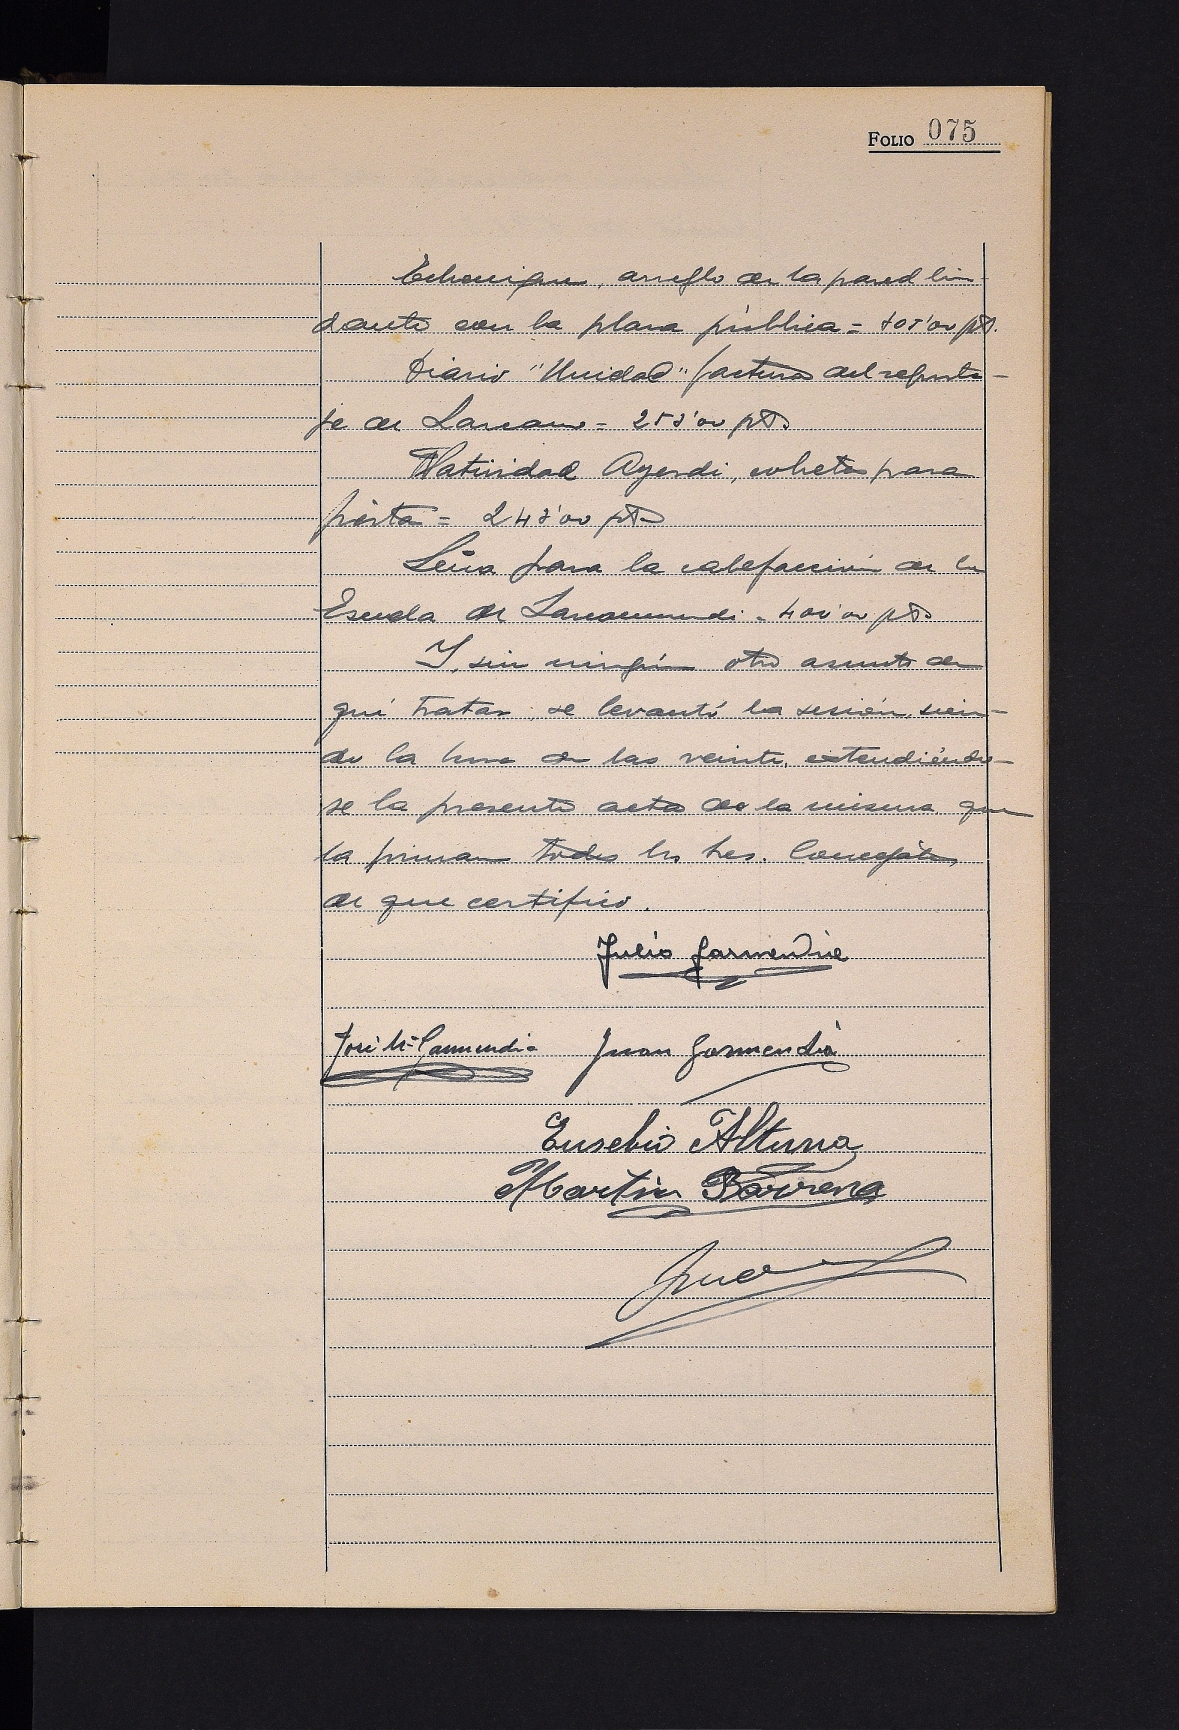 FOLIO 075
Echenique, arreglo de la pared lin-
dante con la plaza pública = pts.
Diario "Unidad" factura del reporta-
je de Lazcano = pts
Natividad Ayerdi, cohetes para
fiesta = pts
Leña para la calefacción de la
Escuela de Lazcaomendi = 400'00 pts
Y, sin ningún otro asunto de
qué tratar, se levantó la sesión, sien-
do la hora de las veinte, extendiéndo-
se la presente acta de la misma que
la firman todos los Sres. Concejales,
de que certifico.
Julio Garmendia
José Mª Garmendia Juan Garmendia
Eusebio Altuna
Martin Barrena